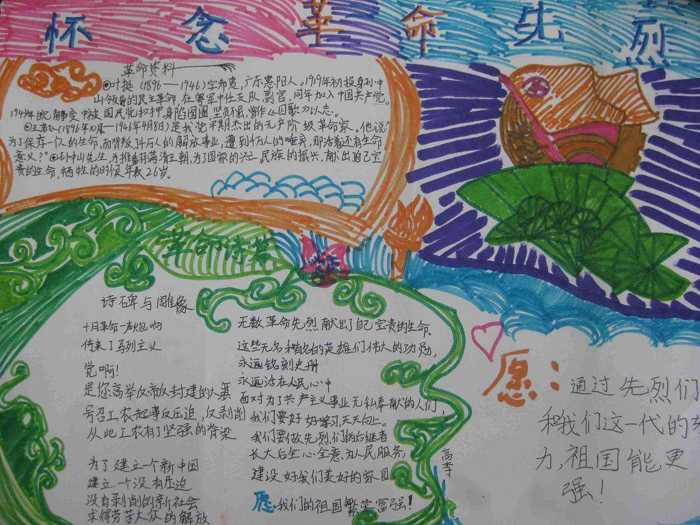 怀念革命先烈
革命资料
①叶挺(1896—1946)字希夷,广东惠阳人。1919年初投身孙中
山领导的民主革命,在粤军中任支队副官,同年加入中国共产党。
②王若飞(1896年10月—1946年4月8日)是我党早期杰出的无产阶级革命家。他说
为了保存一个人的生命,而背叛了千万人的解放事业,遭到千万人的唾弃,那活着还有生命
意义?"③孙中山先生,为推翻满清王朝,为国家的兴亡民族的振兴,献出自己宝
贵的生命,牺牲的时候年仅26岁。
革命诗篇
诗碑与雕像
十月革命一声炮响
传来了马列主义
党啊!
是您高举反帝反封建的大纛
号召工农起事反压迫,反剥削
从此工农有了坚强的脊梁
为了建立一个新中国
建立一个没有压迫
没有剥削的新社会
求得劳苦大众的解放
无数革命先烈献出了自己宝贵的生命。
这些无名牺牲的英雄们伟大的功勋,
永远铭刻史册
永远活在人民心中
面对为了共产主义事业无私奉献的人们,
我们要好好学习,天天向上。
我们要做先烈们的后继者
长大后全心全意为人民服务,
建设好我们美好的家园
愿我们的祖国繁荣富强!
高李
愿:通过先烈们
和我们这一代的努
力,祖国能更
强!